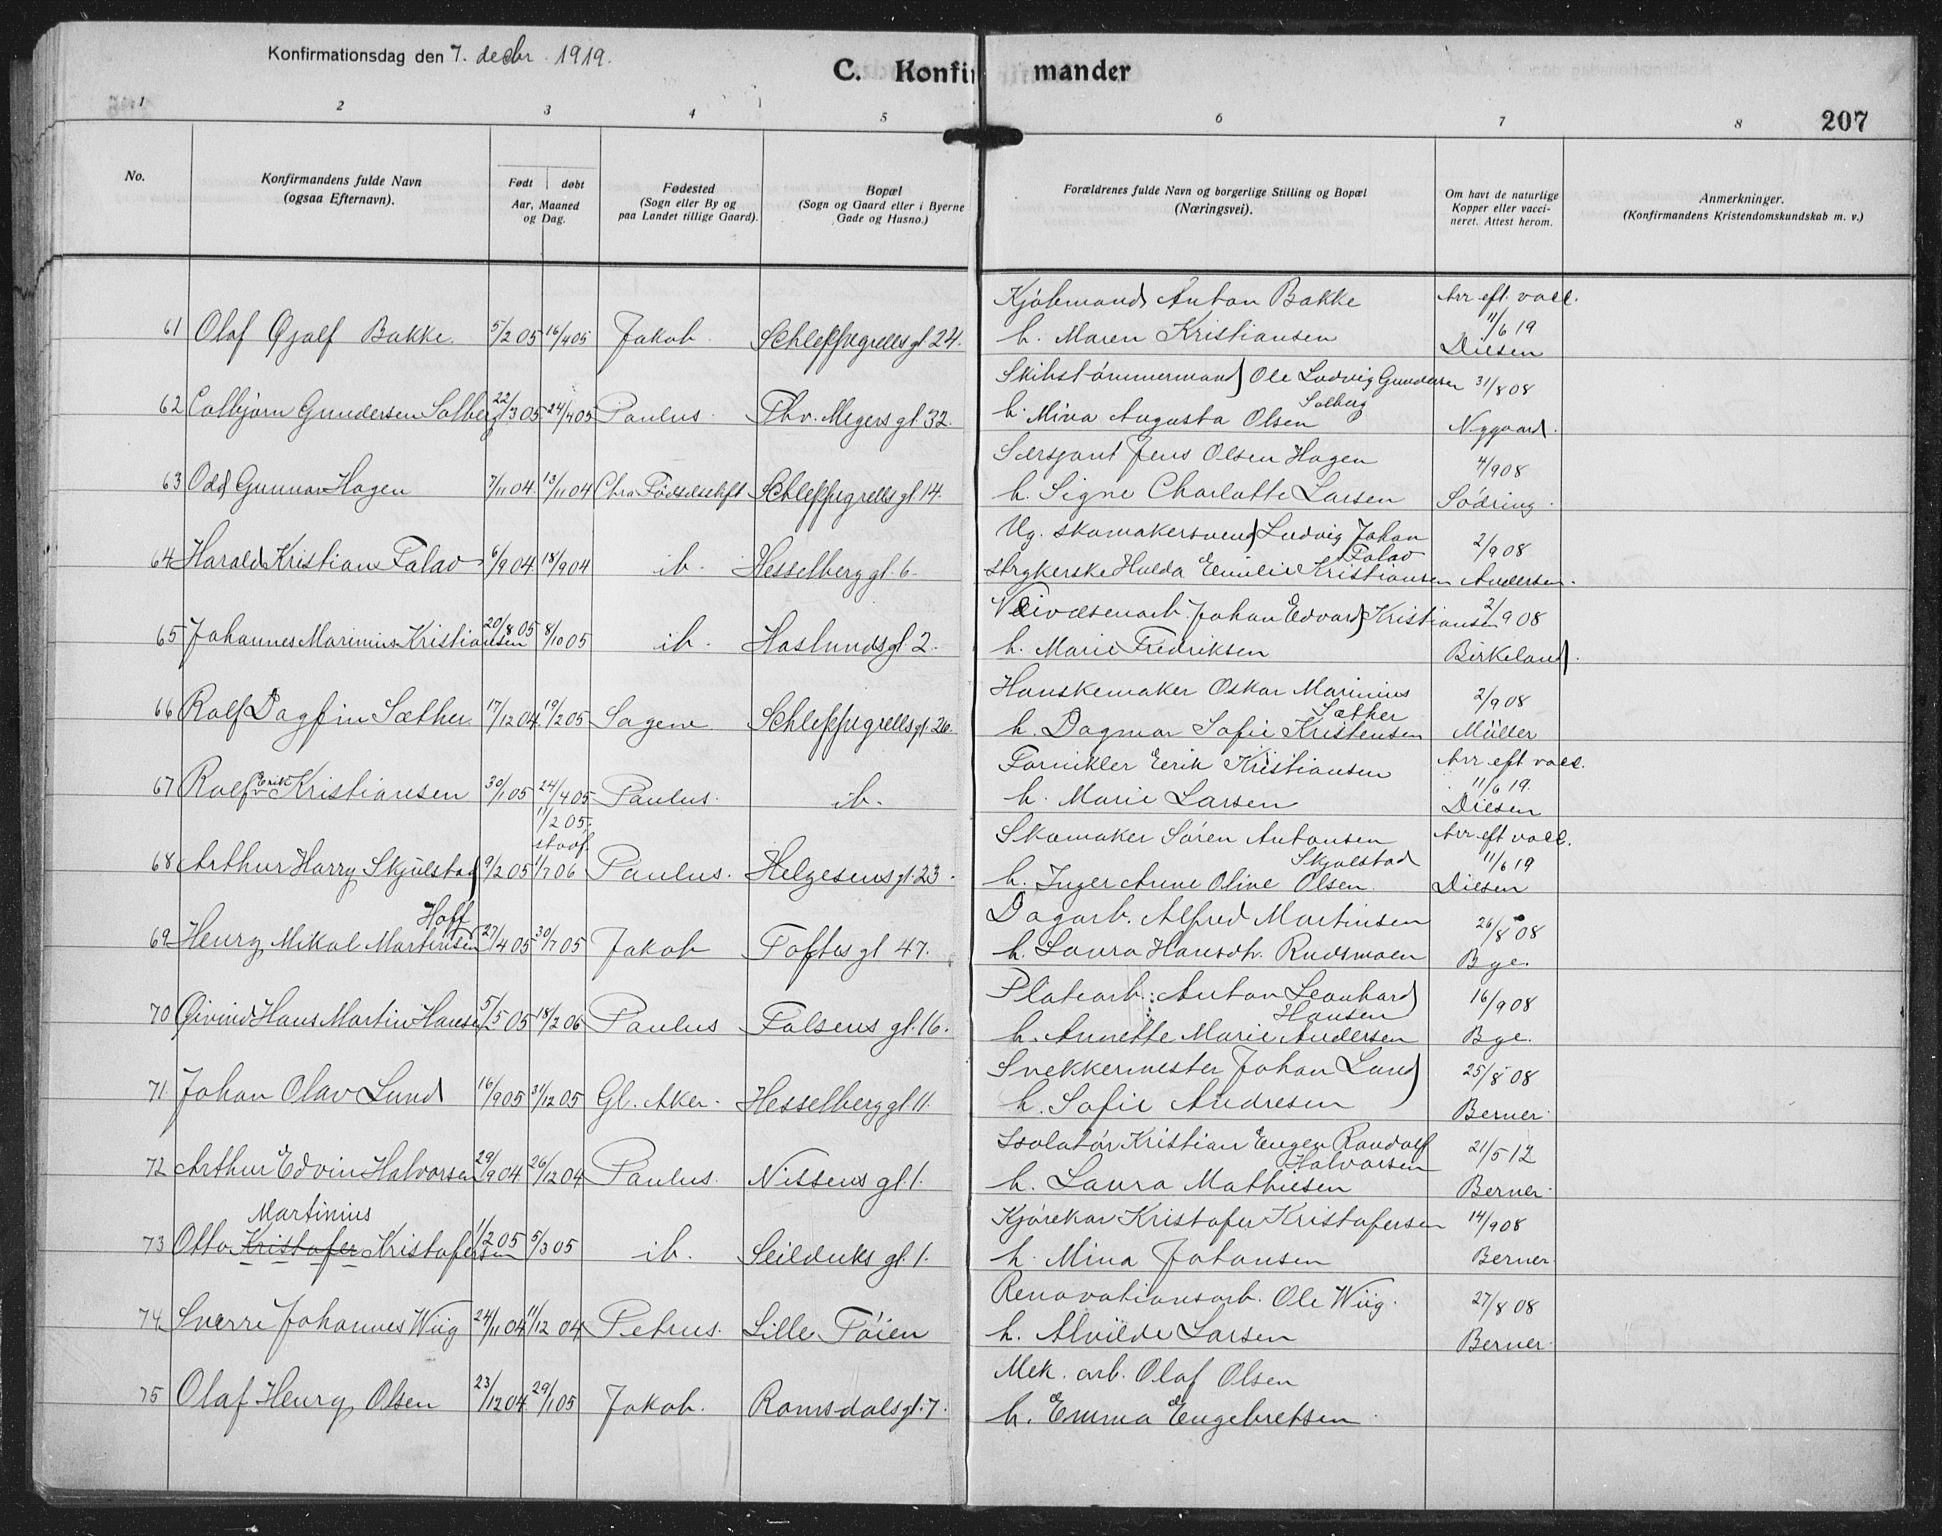 Konfirmationsdag den 7. decbr. 1919.
C. Konfirmander
207
1 2 3 4 5 6 7 8
No.
Konfirmandens fulde Navn
(ogsaa Efternavn).
Født døbt
Aar, Maaned
og Dag.
Fødested
(Sogn eller By og
paa Landet tillige Gaard).
Bopæl
(Sogn og Gaard eller i Byerne
Gade og Husno.)
Forældrenes fulde Navn og borgerlige Stilling og Bopæl
(Næringsvei).
Om havt de naturlige
Kopper eller vacci-
neret. Attest herom.
Anmerkninger.
(Konfirmandens Kristendomskundskab m. v.)
Kjøbmand Anton Bakke Arr eft. vacc.
61 Olaf Gjalf Bakke 5/2 05 16/4 05 Jakob Schleppegrellsgt 24. h. Maren Kristiansen 11/6 19
Diesen
Skibstømmermand Ole Ludvig Gundersen 31/8 08
Solberg
62 Colbjørn Gundersen Solberg 22/3 05 24/4 05 Paulus. Thv. Meyers gt. 32. h. Mina Augusta Olsen Nygaard.
Sersjant Jens Olsen Hagen 4/9 08
63 Odd Gunnar Hagen 7/11 04 13/11 04 Chra Fødselsstift Schleppegrells gt 14. h. Signe Charlotte Larsen Sødring.
Ug. skomakersvend Ludvig Johan 2/9 08
Falao
64 Harald Kristian Falao 6/9 04 18/9 04 ib. Hesselberg gt. 6. strykerske Hulda Emilie Kristiansen Andersen.
Veivæsenarb. Johan Edvard Kristiansen 2/9 08
65 Johannes Marinius Kristiansen 20/8 05 8/10 05 ib. Haslunds gt 2. h. Marie Fredriksen Birkeland.
Hanskemaker Oskar Marinius 2/9 08
Sæther
66 Rolf Dagfin Sæther 17/12 04 19/2 05 Sagene Schleppegrellsgt 26. h. Dagmar Sofie Kristensen Müller
Fornikler Eerik Kristiansen Arr eft vacc.
67 Rolf Erik Kristiansen 30/1 05 24/4 05 Paulus. ib. h. Marie Larsen 11/6 19.
Diesen
11/2 05.
Skomaker Søren Antonsen Arr eft vacc.
Skjølstad
68 Arthur Harry Skjølstad 9/2 05 1/7 06 Paulus. Helgesens gt. 23. h. Inger Anne Oline Olsen 11/6 19
Diesen
Hoff
Dagarb. Alfred Martinsen 26/8 08
69 Henry Mikal Martinsen 27/4 05 30/7 05 Jakob Toftes gt 47. h. Laura Hansdtr. Rudsmoen Bye.
Platearb. Anton Leonhard 16/9 08
Hansen
70 Øivind Hans Martin Hansen 5/5 05 18/2 06 Paulus Falsens gt. 16. h. Annette Marie Andersen Bye.
Snekkermester Johan Lund 25/8 08
71 Johan Olav Lund 16/9 05 31/12 05 Gl. Aker. Hesselberg gt 11. h. Sofie Andresen Berner.
Isolatør Kristian Eugen Randolf 21/5 12
Halvorsen
72 Arthur Edvin Halvorsen 29/9 04 26/12 04 Paulus. Nissens gt. 1. h. Laura Mathiesen Berner.
Martinius
Kjørekar Kristofer Kristofersen 14/9 08
73 Otto Kristofer Kristofersen 1/2 05 5/3 05 ib. Seilduks gt. 1. h. Mina Johansen Berner.
Renovationsarb. Ole Wiig. 27/8 08
74 Sverre Johannes Wiig 24/11 04 11/12 04 Petrus. Lille Tøien h. Alvilde Larsen Berner.
Mek. arb. Olaf Olsen
75 Olaf Henry Olsen 23/12 04 29/1 05 Jakob. Romsdals gt. 7. h. Emma Engebretsen.